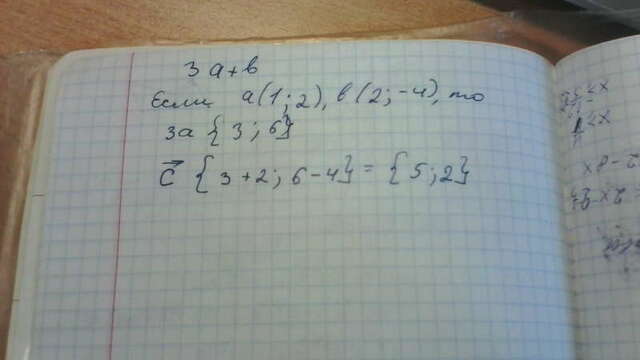 3a+b
Если a(1;2), b(2;-4), то
3a {3;6}
c {3+2; 6-4} = {5;2}